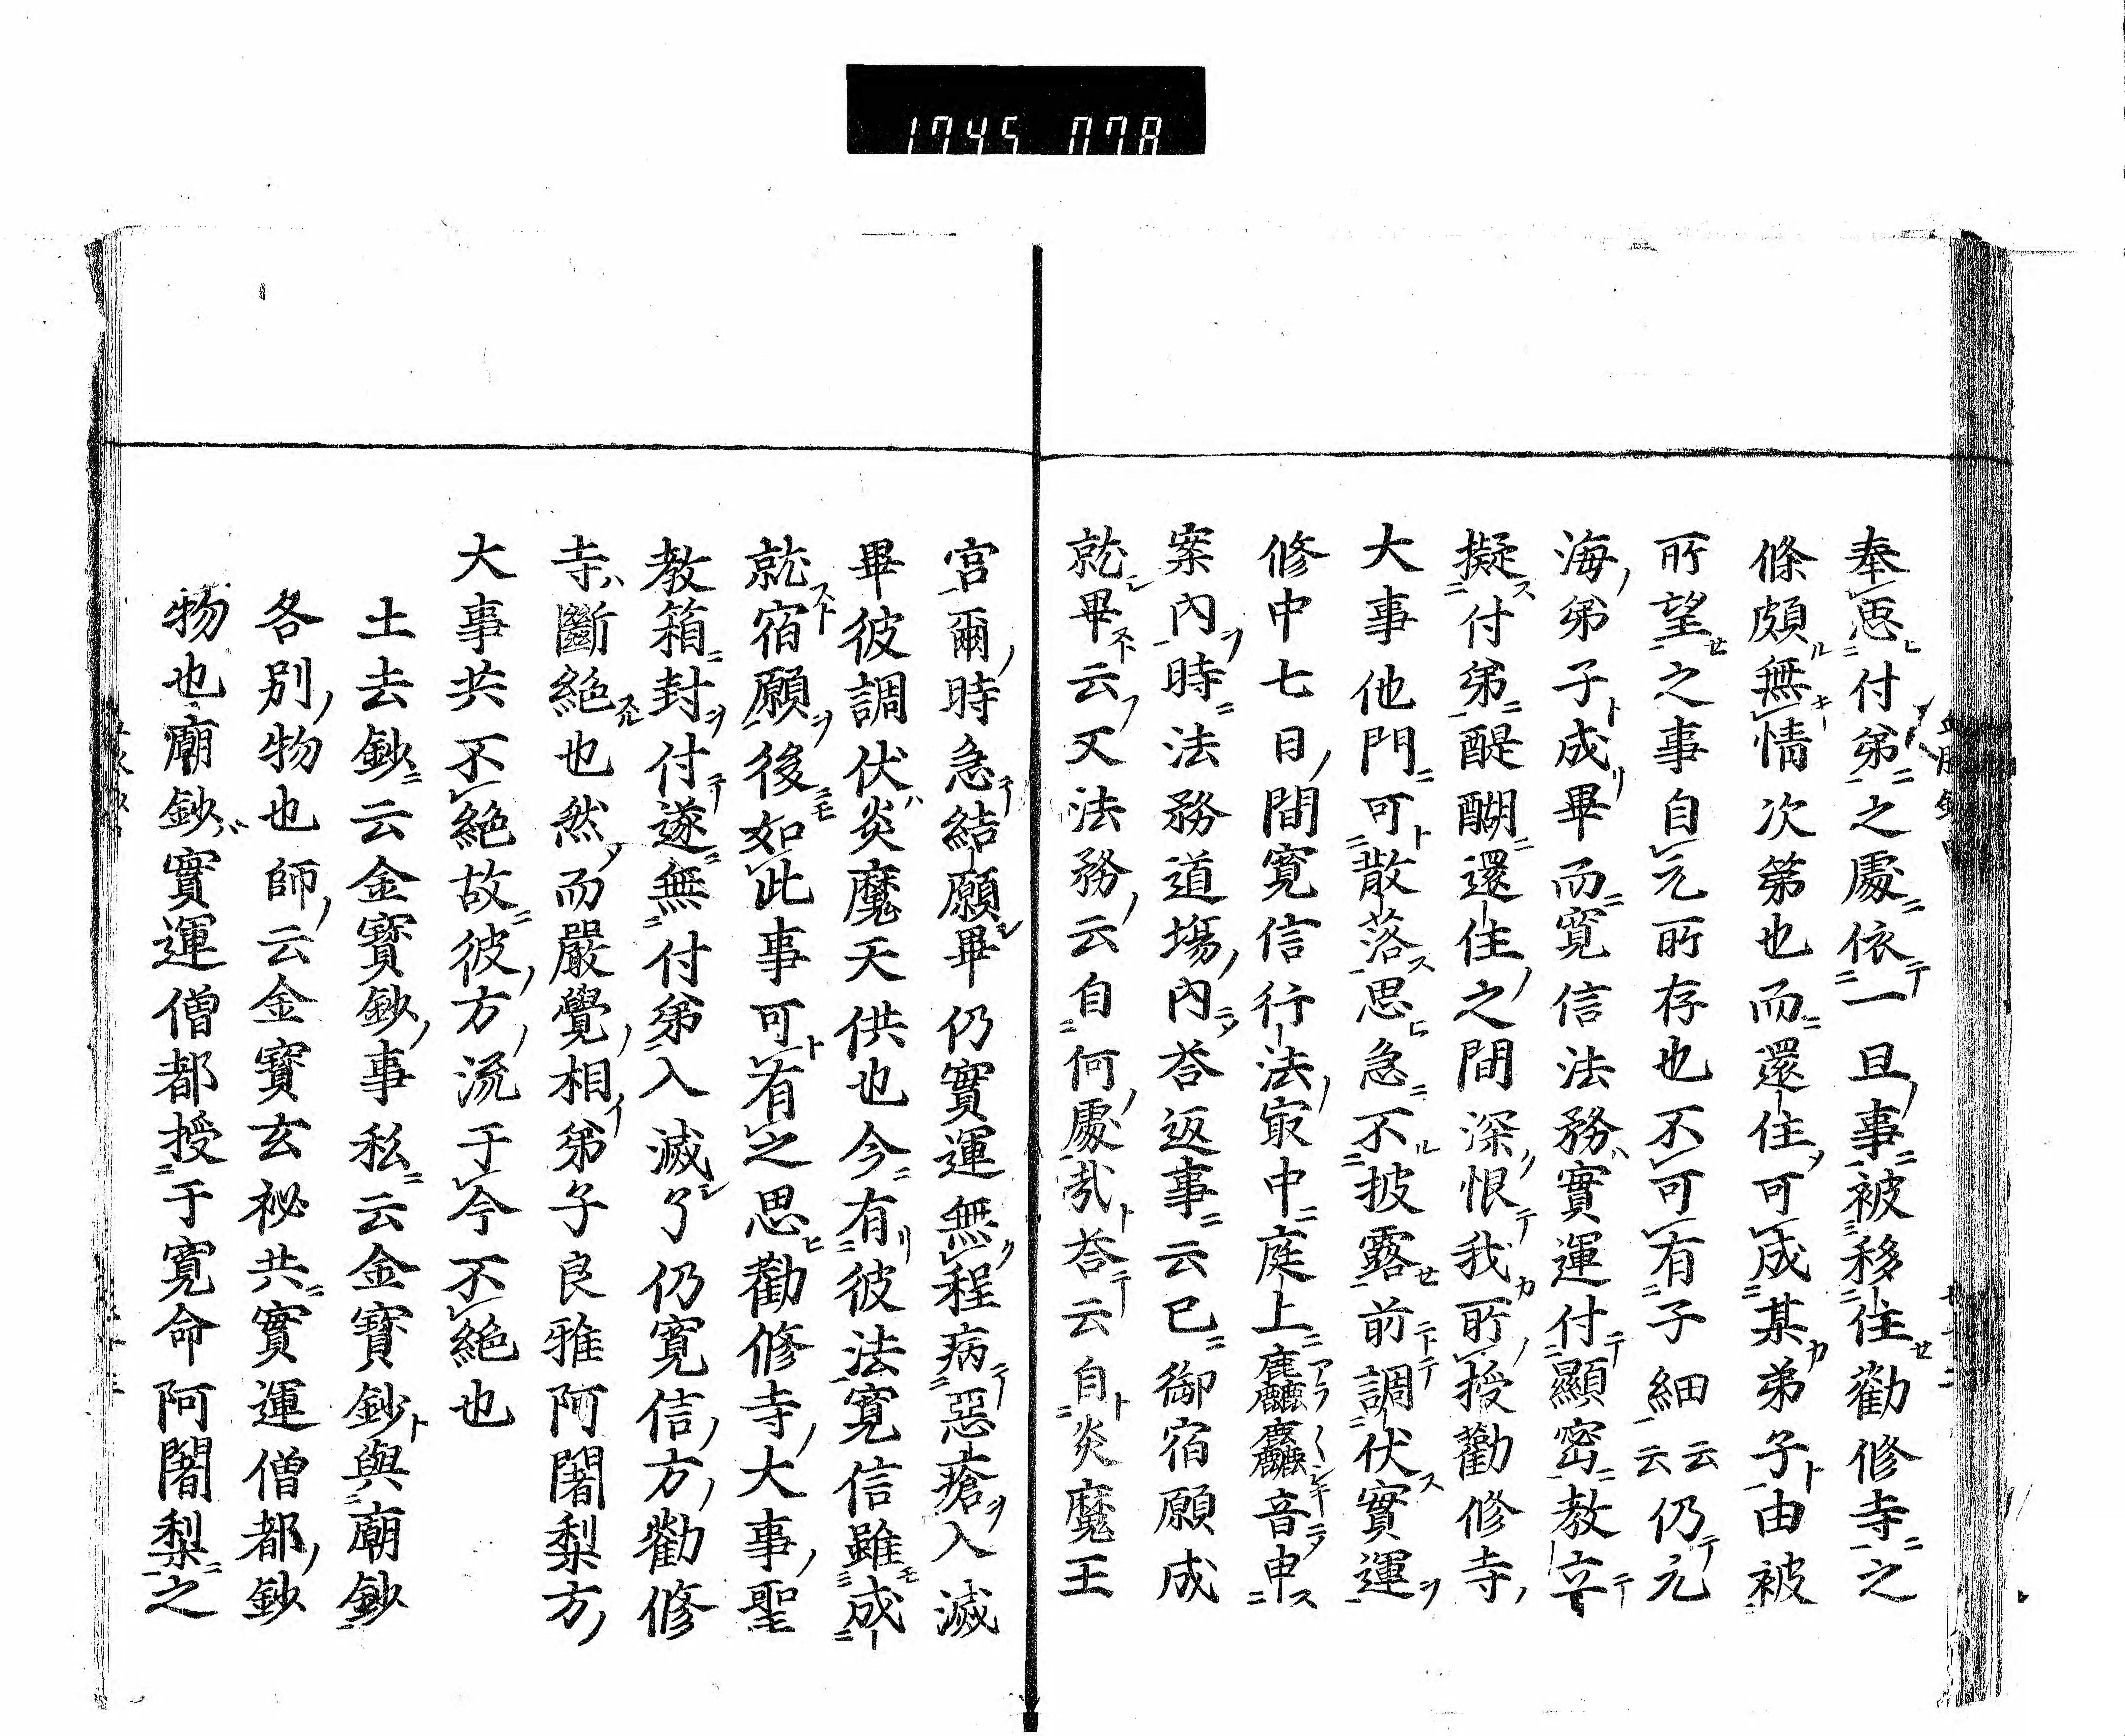 1745 078
奉思付弟之處依一旦事被移住勸修寺之
條頗無情次第也而還住可成某弟子由被
所望之事自元所存也不可有子細云云仍元
海弟子成畢而寬信法務實運付顯密教立
擬付弟醍醐還住之間深恨我所授勸修寺
大事他門可散落思急不披露前調伏實運
修中七日間寬信行法㝡中庭上麤麤音申
案內時法務道場內答返事云已御宿願成
就畢云又法務云自何處哉答云自炎魔王
宮爾時急結願畢仍實運無程病惡瘡入滅
畢彼調伏炎魔天供也今有彼法寬信雖成
就宿願後如此事可有之思勸修寺大事聖
教箱封付遂無付弟入滅了仍寬信方勸修
寺斷絕也然而嚴覺相弟子良雅阿闍梨方
大事共不絕故彼方流于今不絕也
土去鈔云金寶鈔事私云金寶鈔與廟鈔
各別物也師云金寶玄祕共實運僧都鈔
物也廟鈔實運僧都授于寬命阿闍梨之